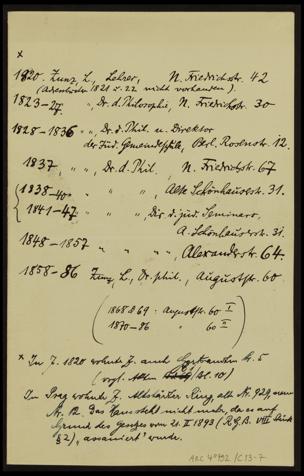 x
1820 Zunz, L., Lehrer, N. Friedrichstr. 42
(Adressbücher 1821 u. 22 nicht vorhanden).
1823-27 " , Dr. d. Philosophie, N. Friedrichstr. 30
1828-1836 " " , Dr. d. Phil. u. Direktor
der Jüd. Gemeindeschule, Berl. Rosenstr. 12.
1837, " " , Dr. d. Phil. , N. Friedrichstr. 67
1838-40 " " " , Alte Schönhauserstr. 31.
1841-47 " " " , Dir. d. jüd. Seminars,
A. Schönhauserstr. 31.
1848-1857 " " " " , Alexanderstr. 64.
1858-86 Zunz, L., Dr. phil., Auguststr. 60
(1868 & 69 : Auguststr. 60 I
1870-86 " 60 II)
x In J. 1820 wohnte Z. auch N. 5
(vgl. Bl. 10)
In Prag wohnte Z. Altstädter Ring, alt Nr. 929, neu
Nr. 12. Das Haus steht nicht mehr, da es auf
Grund des Gesetzes vom II 1893 (R.G.B. VIII Stück
§ 2), "assaniert" wurde.
ARC 4° 792 / C13-7